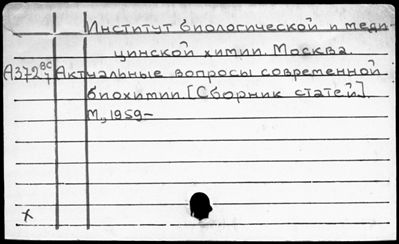 Институт биологической и меди-
цинской химии. Москва.
А372 ВС/7 Актуальные вопросы современной
биохимии. [Сборник статей].
М., 1959-
х